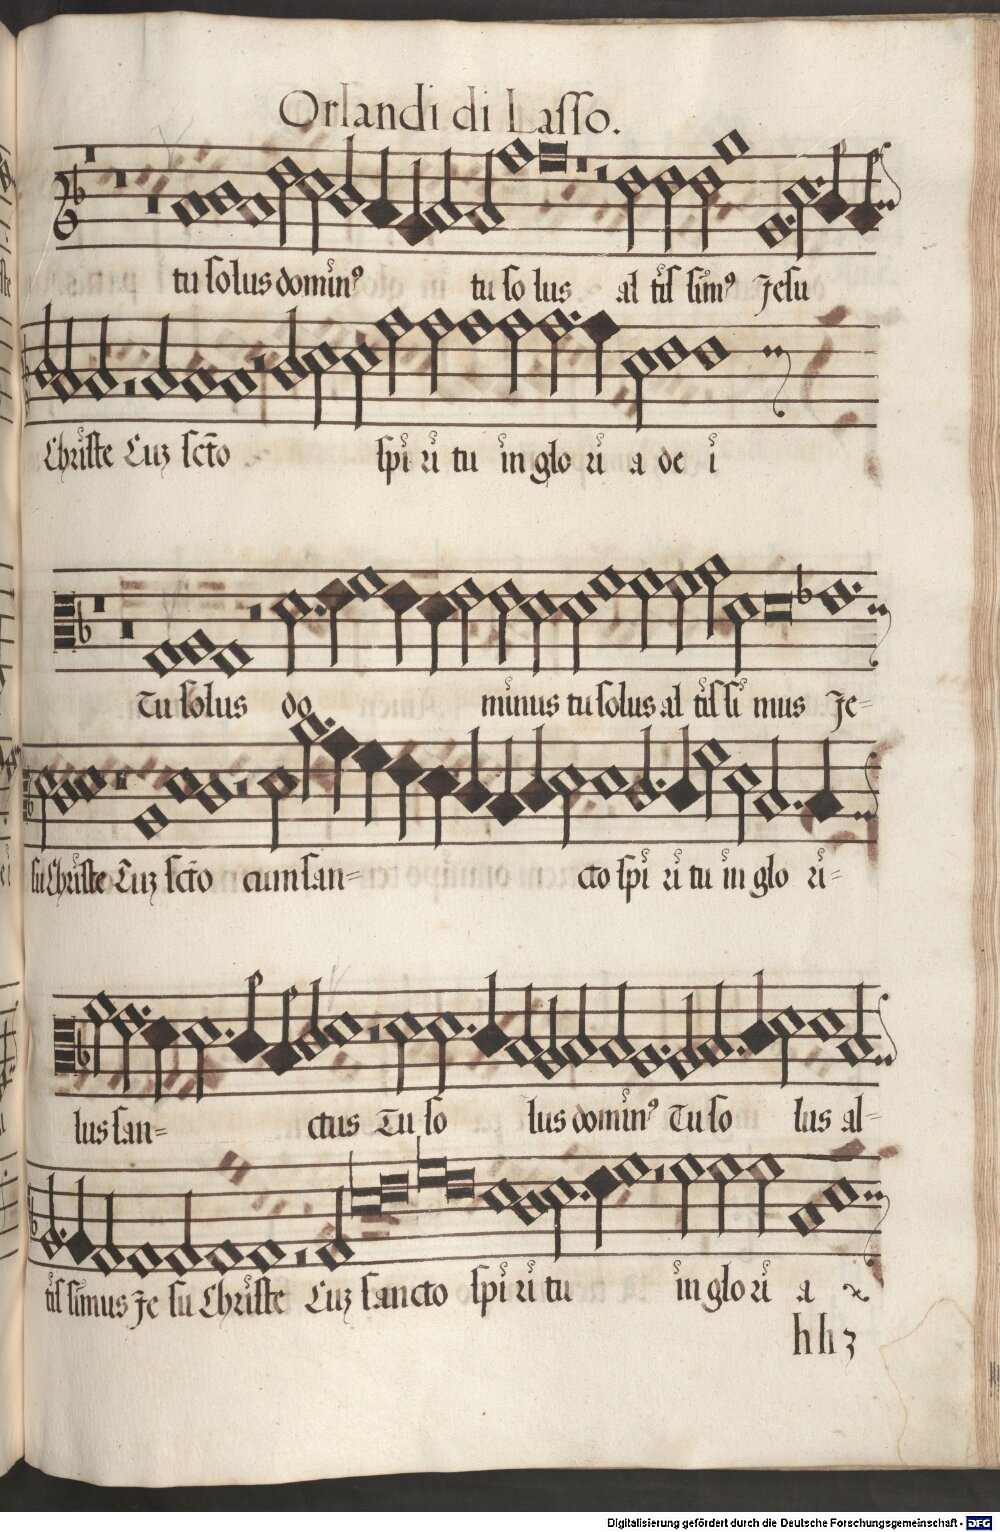 Orlandi di Lasso.
tu solus dominꝰ tu so lus al tis simꝰ Jesu
Christe Cuz scto spi ri tu in glo ri a de i
Tu solus do minus tu solus al tis si mus Je=
su Christe Cuz scto cum san= cto spi ri tu in glo ri=
lus san= ctus Tu so lus dominꝰ Tu so lus al=
tis simus Je su Christe Cuz sancto spi ri tu in glo ri a
hh3
Digitalisierung gefördert durch die Deutsche Forschungsgemeinschaft - DFG